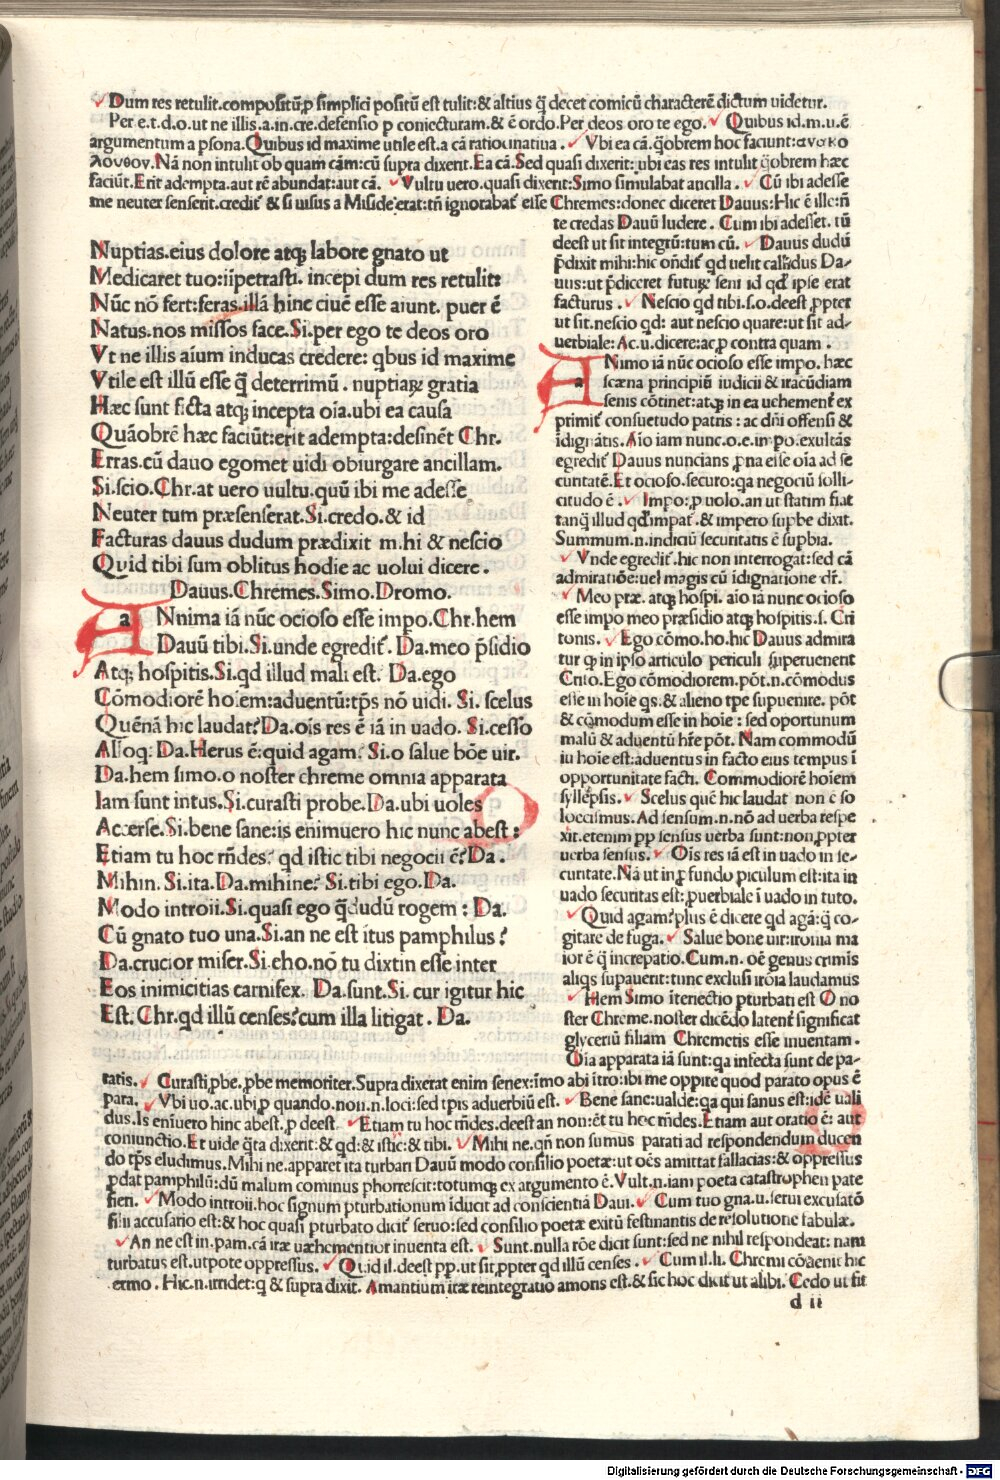 Dum res retulit.compositū,p simplici positū est tulit:& altius q̄ decet comicū characterē dictum uidetur.
Per e.t.d.o.ut ne illis.a.in.cre.defensio p coniecturam.& ē ordo.Per deos oro te ego. Quibus id.m.u.ē
argumentum a psona.Quibus id maxime utile est.a cā ratiocinatiua. Vbi ea cā.q̄obrem hoc faciunt:ανακο
λουθον.Nā non intulit ob quam cām:cū supra dixerit.Ea cā.Sed quasi dixerit:ubi eas res intulit q̄obrem hæc
faciūt.Erit adempta.aut rē abundat:aut cā. Vultu uero.quasi dixerit:Simo simulabat ancilla. Cū ibi adesse
me neuter senserit.credit & si uisus a Miside erat:tn̄ ignorabat esse Chremes:donec diceret Dauus:Hic ē ille:n̄
Nuptias.eius dolore atq; labore gnato ut
Medicaret tuo:iipetrasti. incepi dum res retulit:
Nūc nō fert:feras.illā hinc ciuē esse aiunt. puer ē
Natus.nos missos face.Si.per ego te deos oro
Vt ne illis aium inducas credere: qbus id maxime
Vtile est illū esse q̄ deterrimū. nuptiaꝝ gratia
Hæc sunt ficta atq; incepta oia.ubi ea causa
Quāobrē hæc faciūt:erit adempta:desinēt Chr.
Erras.cū dauo egomet uidi obiurgare ancillam.
Si.scio.Chr.at uero uultu.quū ibi me adesse
Neuter tum præsenserat.Si.credo.& id
Facturas dauus dudum prædixit mihi & nescio
Quid tibi sum oblitus hodie ac uolui dicere.
Dauus.Chremes.Simo.Dromo.
a Nnima iā nūc ocioso esse impo.Chr.hem
Dauū tibi.Si.unde egredit. Da.meo p̄sidio
Atq; hospitis.Si.qd illud mali est. Da.ego
Cōmodiorē hoīem:aduentū:tp̄s nō uidi. Si. scelus
Quēnā hic laudat? Da.ois res ē iā in uado. Si.cesso
Alloq: Da.Herus ē:quid agam? Si.o salue bōe uir.
Da.hem simo.o noster chreme omnia apparata
Iam sunt intus.Si.curasti probe.Da.ubi uoles q
Accerse.Si.bene sane:is enimuero hic nunc abest:
Etiam tu hoc rn̄des? qd istic tibi negocii ē? Da.
Mihin. Si.ita.Da.mihine? Si.tibi ego.Da.
Modo introii.Si.quasi ego q̄dudū rogem: Da.
Cū gnato tuo una.Si.an ne est itus pamphilus?
Da.crucior miser.Si.eho.nō tu dixtin esse inter
Eos inimicitias carnifex. Da.sunt.Si. cur igitur hic
Est. Chr.qd illū censes? cum illa litigat. Da.
te credas Dauū ludere. Cum ibi adesset. tū
deest ut sit integrū:tum cū. Dauus dudū
p̄dixit mihi:hic on̄dit qd uelit callidus Da-
uus:ut p̄diceret futuꝝ seni id qd ipse erat
facturus. Nescio qd tibi.s.o.deest,ppter
ut sit.nescio qd: aut nescio quare:ut sit ad-
uerbiale: Ac.u.dicere:ac,p contra quam.
a Nimo iā nūc ocioso esse impo. hæc
scæna principiū iudicii & iracūdiam
senis cōtinet:atq; in ea uehement̄ ex
primit consuetudo patris: ac dn̄i offensi &
īdignātis.Aio iam nunc.o.e.in po.exultās
egredit Dauus nuncians,p na esse oīa ad se
curitatē.Et ocioso.securo:qa negociū solli-
citudo ē. Impo:,p uolo.an ut statim fiat
tanq̄ illud qd impat.& impero supbe dixit.
Summum.n.indiciū securitatis ē supbia.
Vnde egredit.hic non interrogat:sed cā
admiratiōe:uel magis cū idignatione dr̄.
Meo præ. atq; hospi. aio iā nunc ocioso
esse impo meo præsidio atq; hospitis.s. Cri
tonis. Ego cōmo.ho.hic Dauus admira
tur q in ipso articulo periculi superuenerit
Crito.Ego cōmodiorem.pōt.n.cōmodus
esse in hoīe qs.& alieno tpe supuenire. pōt
& cōmodum esse in hoīe: sed oportunum
malū & aduentū hr̄e pōt. Nam commodū
iu hoīe est:aduentus in facto eius tempus ī
opportunitate facti. Commodiorē hoīem
syllepsis. Scelus quē hic laudat non ē so
loecismus.Ad sensum.n.nō ad uerba respe
xit.etenim pp sensus uerba sunt:non,ppter
uerba sensus. Oīs res iā est in uado in se-
curitate.Nā ut in,p fundo piculum est:ita in
uado securitas est:,puerbiale ī uado in tuto.
Quid agam?plus ē dicere qd agā:q̄ co-
gitare de fuga. Salue bone uir:ironia ma
ior ē q̄ increpatio.Cum.n. oē genus crimis
aliqs supauerit:tunc exclusi irōia laudamus
Hem Simo īteriectio pturbati est O no
ster Chreme.noster dicēdo latent̄ significat
glyceriū filiam Chremetis esse inuentam.
Oīa apparata iā sunt:qa infecta sunt de pa-
ratis. Curasti,pbe.,pbe memoriter.Supra dixerat enim senex:īmo abi ītro:ibi me oppire quod parato opus ē
para. Vbi uo.ac.ubi,p quando.non.n.loci:sed tpis aduerbiū est. Bene sane:ualde:qa qui sanus est:idē uali
dus.Is enīuero hinc abest.,p deest. Etiam tu hoc rn̄des.deest an non:ēt tu hoc rn̄des.Etiam aut oratio ē: aut
coniunctio.Et uide q̄ta dixerit:& qd:& istic:& tibi. Mihi ne.qn̄ non sumus parati ad respondendum ducen
do tp̄s eludimus.Mihi ne.apparet ita turbari Dauū modo consilio poetæ:ut oēs amittat fallacias:& oppressus
,pdat pamphilū:dū malum cominus phorrescit:totumq; ex argumento ē.Vult.n.iam poeta catastrophen pate
fieri. Modo introii.hoc signum pturbationum iducit ad conscientiā Daui. Cum tuo gna.u.serui excusatō
filii accusatio est:& hoc quasi pturbato dicit seruo:sed consilio poetæ exitū festinantis de resolutione fabulæ.
An ne est in.pam.cā iræ uæhementior inuenta est. Sunt.nulla rōe dicit sunt:sed ne nihil respondeat: nam
turbatus est.utpote oppressus. Quid il.deest pp.ut sit,ppter qd illū censes. Cum il.li. Chremi cōuenit hic
ermo. Hic.n.irridet:q & supra dixit. Amantium iræ reintegratio amoris est.& sic hoc dicit ut alibi. Cedo ut sit
d ii
Digitalisierung gefördert durch die Deutsche Forschungsgemeinschaft - DFG